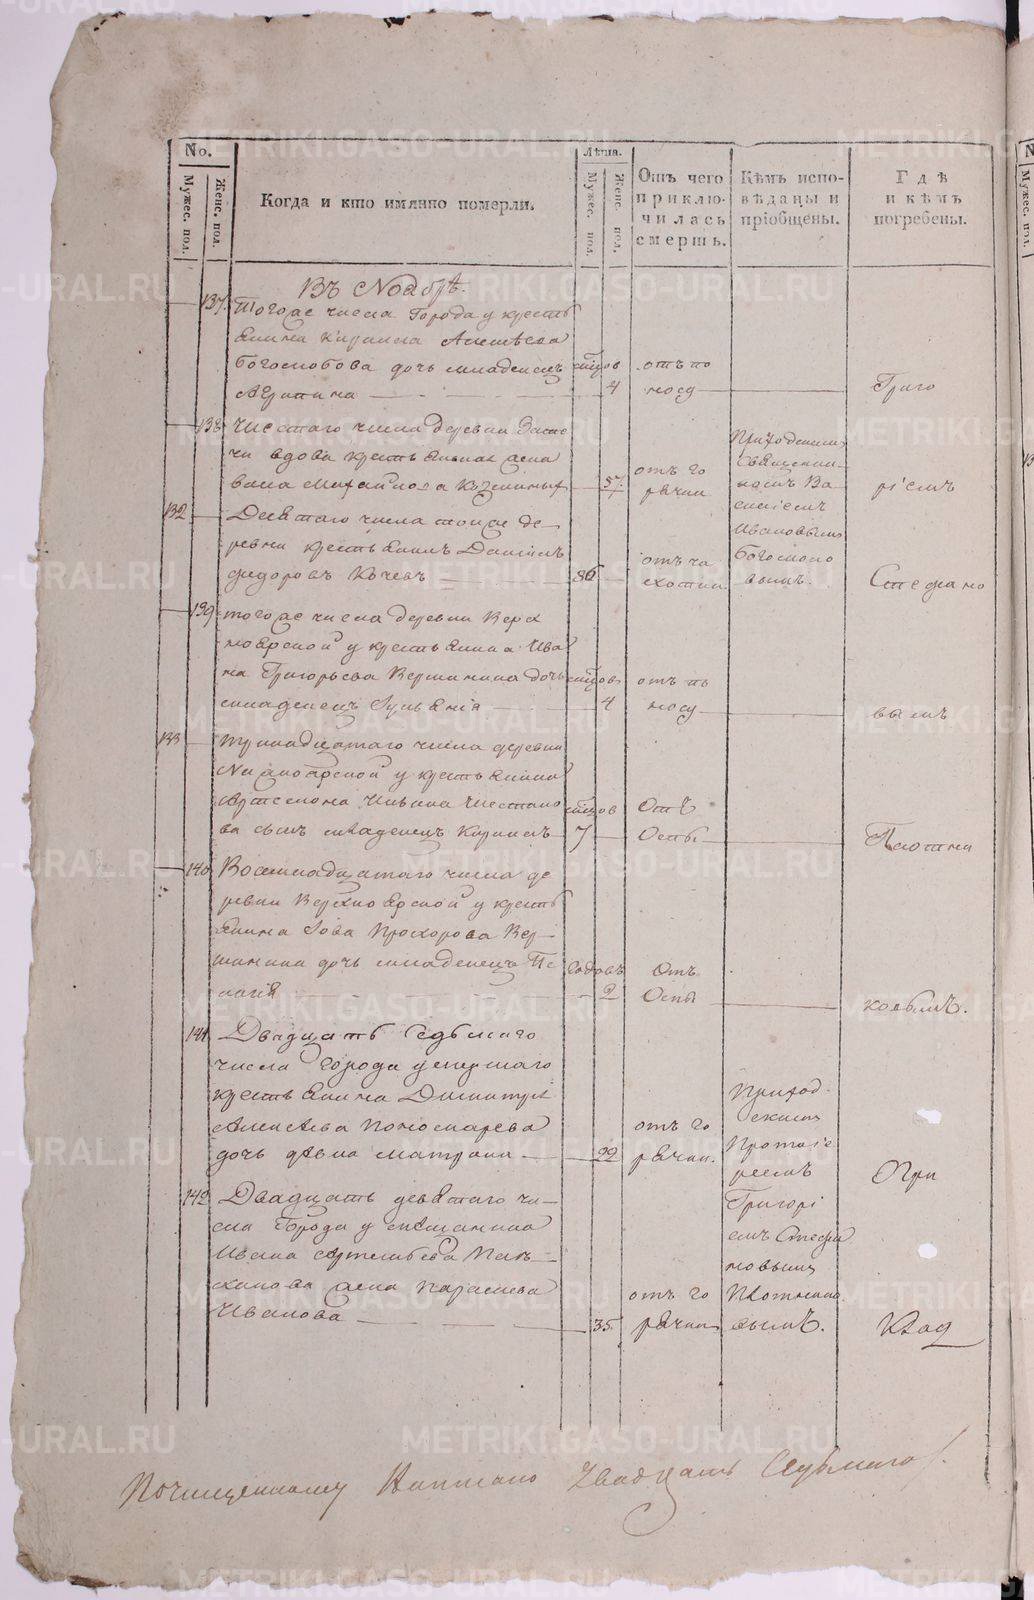 No.
Мужес. пол.
Женс. пол.
Когда и кто имянно померли.
Лѣта.
Мужес. пол.
Женс. пол.
Отъ чего приклю-
чилась
смерть.
Кѣмъ испо-
вѣданы и
пріобщены.
Гдѣ
и кѣмъ
погребены.
Въ Ноябрѣ.
137. Тогоже числа Города у кресть
янина Кирилла Алексѣева
Боголюбова дочь младенецъ
Агрипина 4 отъ по
носу Григо
138 Шестаго числа деревни
вдова крестьянская жена
Михайлова 57. отъ го
рячки
Приходскимъ
Священни-
комъ Ва
силіемъ
Ивановымъ
Богомоло
вымъ.
ріемъ
132 Девятаго числа тойже де-
ревни крестьянинъ Даніилъ
Федоровъ 86 отъ ча
хотки Стефано
139 тогоже числа деревни Верх
ноярской у крестьянина Ива
на Григорьева Вершинина дочь
младенецъ Іуліянія 4 отъ по
носу вымъ
133 тринадцатаго числа деревни
Нижноярской у крестьянина
Ильина Шестако
ва сынъ младенецъ Кирилъ 7 Отъ
Оспы Плотни
140 Восемнадцатаго числа де
ревни Верхноярской у кресть
янина Іова Прохорова Вер-
шинина дочь младенецъ Пе
лагія годовъ 2 Отъ
Оспы ковымъ.
141 Двадцать седьмаго
числа Города умершаго
крестьянина Димитрія
Алексѣева Пономарева
дочь дѣвка Матрона 22 отъ го
рячки.
Приход-
скимъ
Протоіе
реемъ
Григорі
емъ Стефа
новымъ
Плотнико
вымъ.
При
142 Двадцать девятаго чи-
сла Города у мѣщанина
Ивана
жена Параскева
Иванова 35. отъ го
рячки Клад
Двадцать Седьмаго